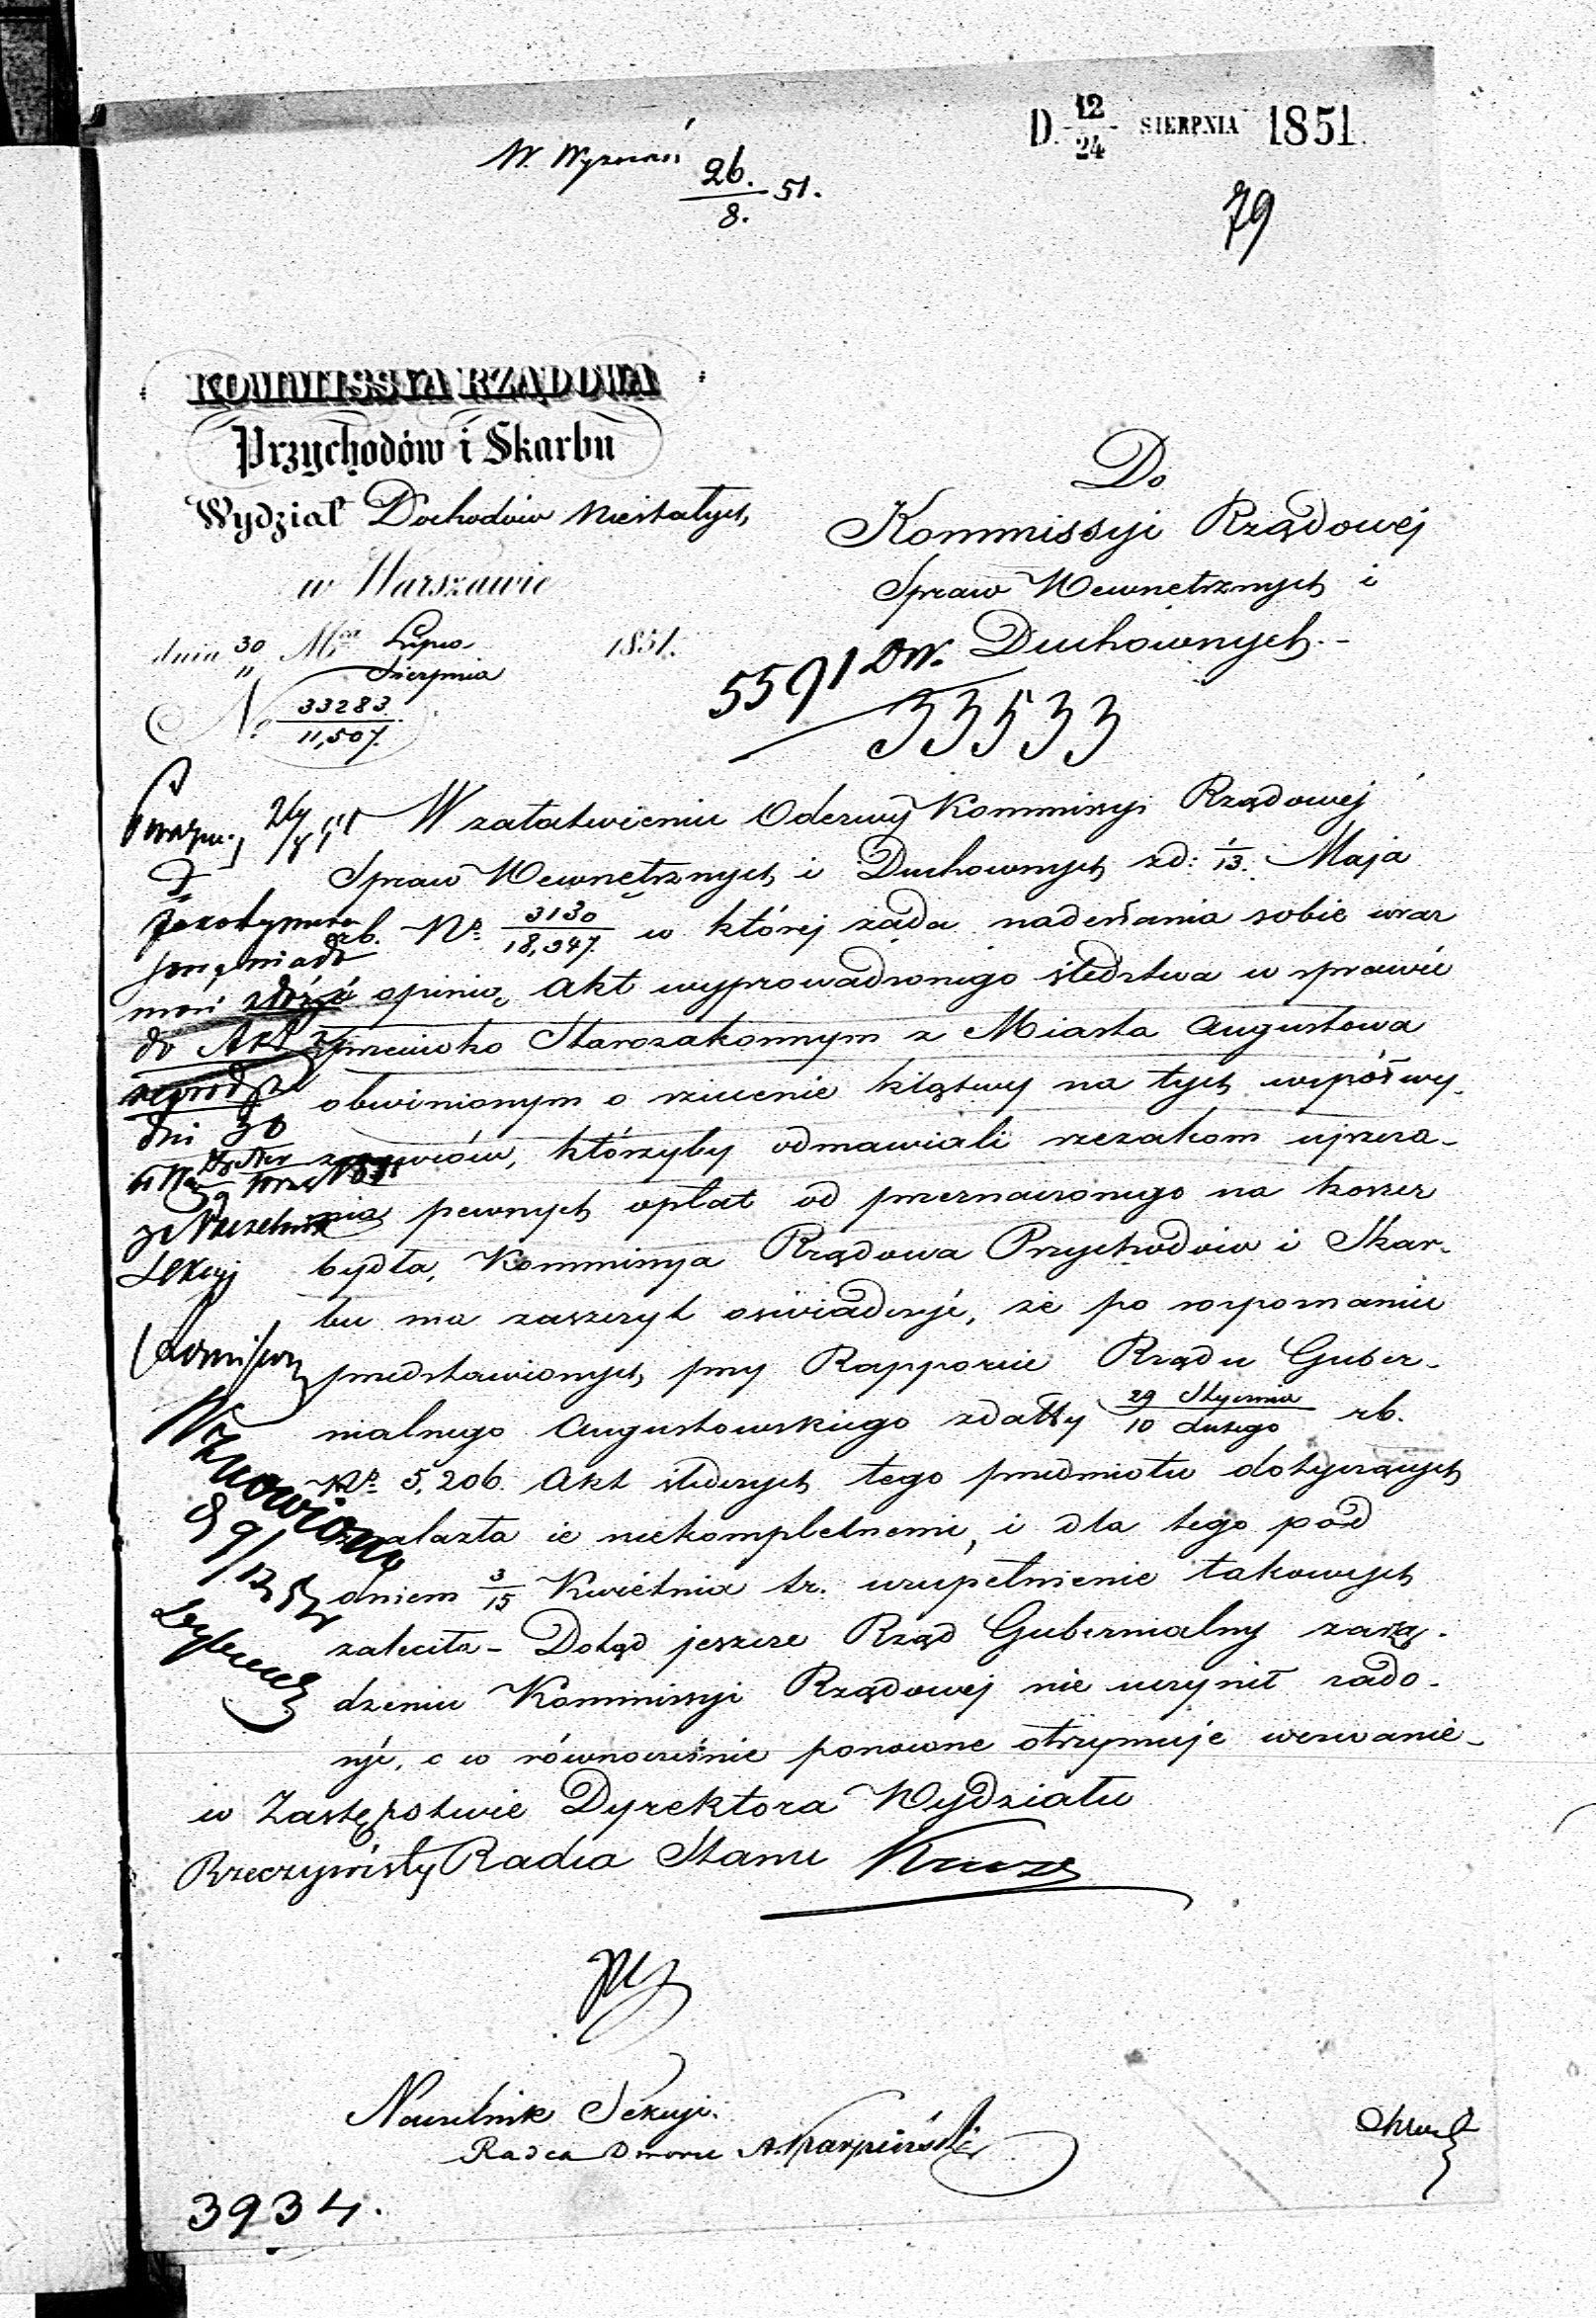 D. 12/24 SIERPNIA 1851.
W.
26./8. 51.
79
KOMMISSYA RZĄDOWA
Przychodów i Skarbu
Wydział Dochodów Niestałych
w Warszawie
dnia 30 Mca Lipca 1851.
" Sierpnia
No 33283./11,507.
Do
Kommissyi Rządowéj
Spraw Wewnętrznych i
Duchownych.-
5591 DW.
33533
W załatwieniu Odezwy Kommissyi Rządowéj
Spraw Wewnętrznych i Duchownych zd: 1/13. Maja
rb. No. 3130/18,347. w któréj żąda nadesłania sobie wraz
z opinią Akt wyprowadzonego śledztwa w sprawie
przeciwko Starozakonnym z Miasta Augustowa
obwinionym o rzucenie klątwy na tych współwy-
znawców, którzyby odmawiali rzezakom uiszcza-
nia pewnych opłat od przeznaczonego na koszer
bydła, Kommissya Rządowa Przychodów i Skar-
bu ma zaszczyt oświadczyć, że po rozpoznaniu
przedstawionych przy Rapporcie Rządu Guber-
nialnego Augustowskiego z daty 29 Stycznia/10 Lutego rb.
No. 5,206. Akt śledczych tego przedmiotu dotyczących
znalazła je niekompletnemi, i dla tego pod
dniem 3/15 Kwietnia br. uzupełnienie takowych
zaleciła - Dotąd jeszcze Rząd Gubernialny zarzą-
dzeniu Kommissyi Rządowéj nie uczynił zado-
syć, o co równocześnie ponowne otrzymuje wezwanie -
w Zastępstwie Dyrektora Wydziału
Rzeczywisty Radca Stanu
Naczelnik Sekcyi.
Radca Dworu A. Karpiński
3934.
do Akt
dni 30
Naczelnik
Sekcyi
Wznowiono
d 9/12 51